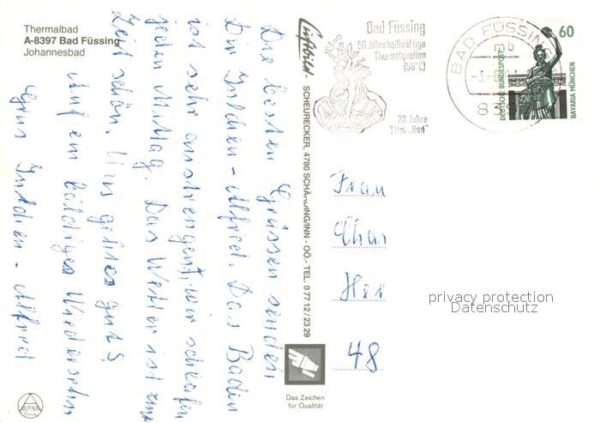 Thermalbad
A-8397 Bad Füssing
Johannesbad
Die besten Grüssen senden
Dir Julchen - Alfred. Das Baden
ist sehr anstrengent, wir schlafen
jeden Mittag. Das Wetter ist zur
Zeit schön. Uns geht es gut!
Auf ein baldiges Wiedersehn
Grus Julchen - Alfred
Luftbild - SCHEURECKER, 4780 SCHÄRDING/INN - OÖ. - TEL. 0 77 12 / 23 29
Das Zeichen
für Qualität
Bad Füssing
50 Jahre heilkräftige
Thermalquellen
(56°C)
20 Jahre
Titel "Bad"
BAD FÜSSING
60
DEUTSCHE BUNDESPOST
BAVARIA MÜNCHEN
Frau
Char
Her
48
privacy protection
Datenschutz